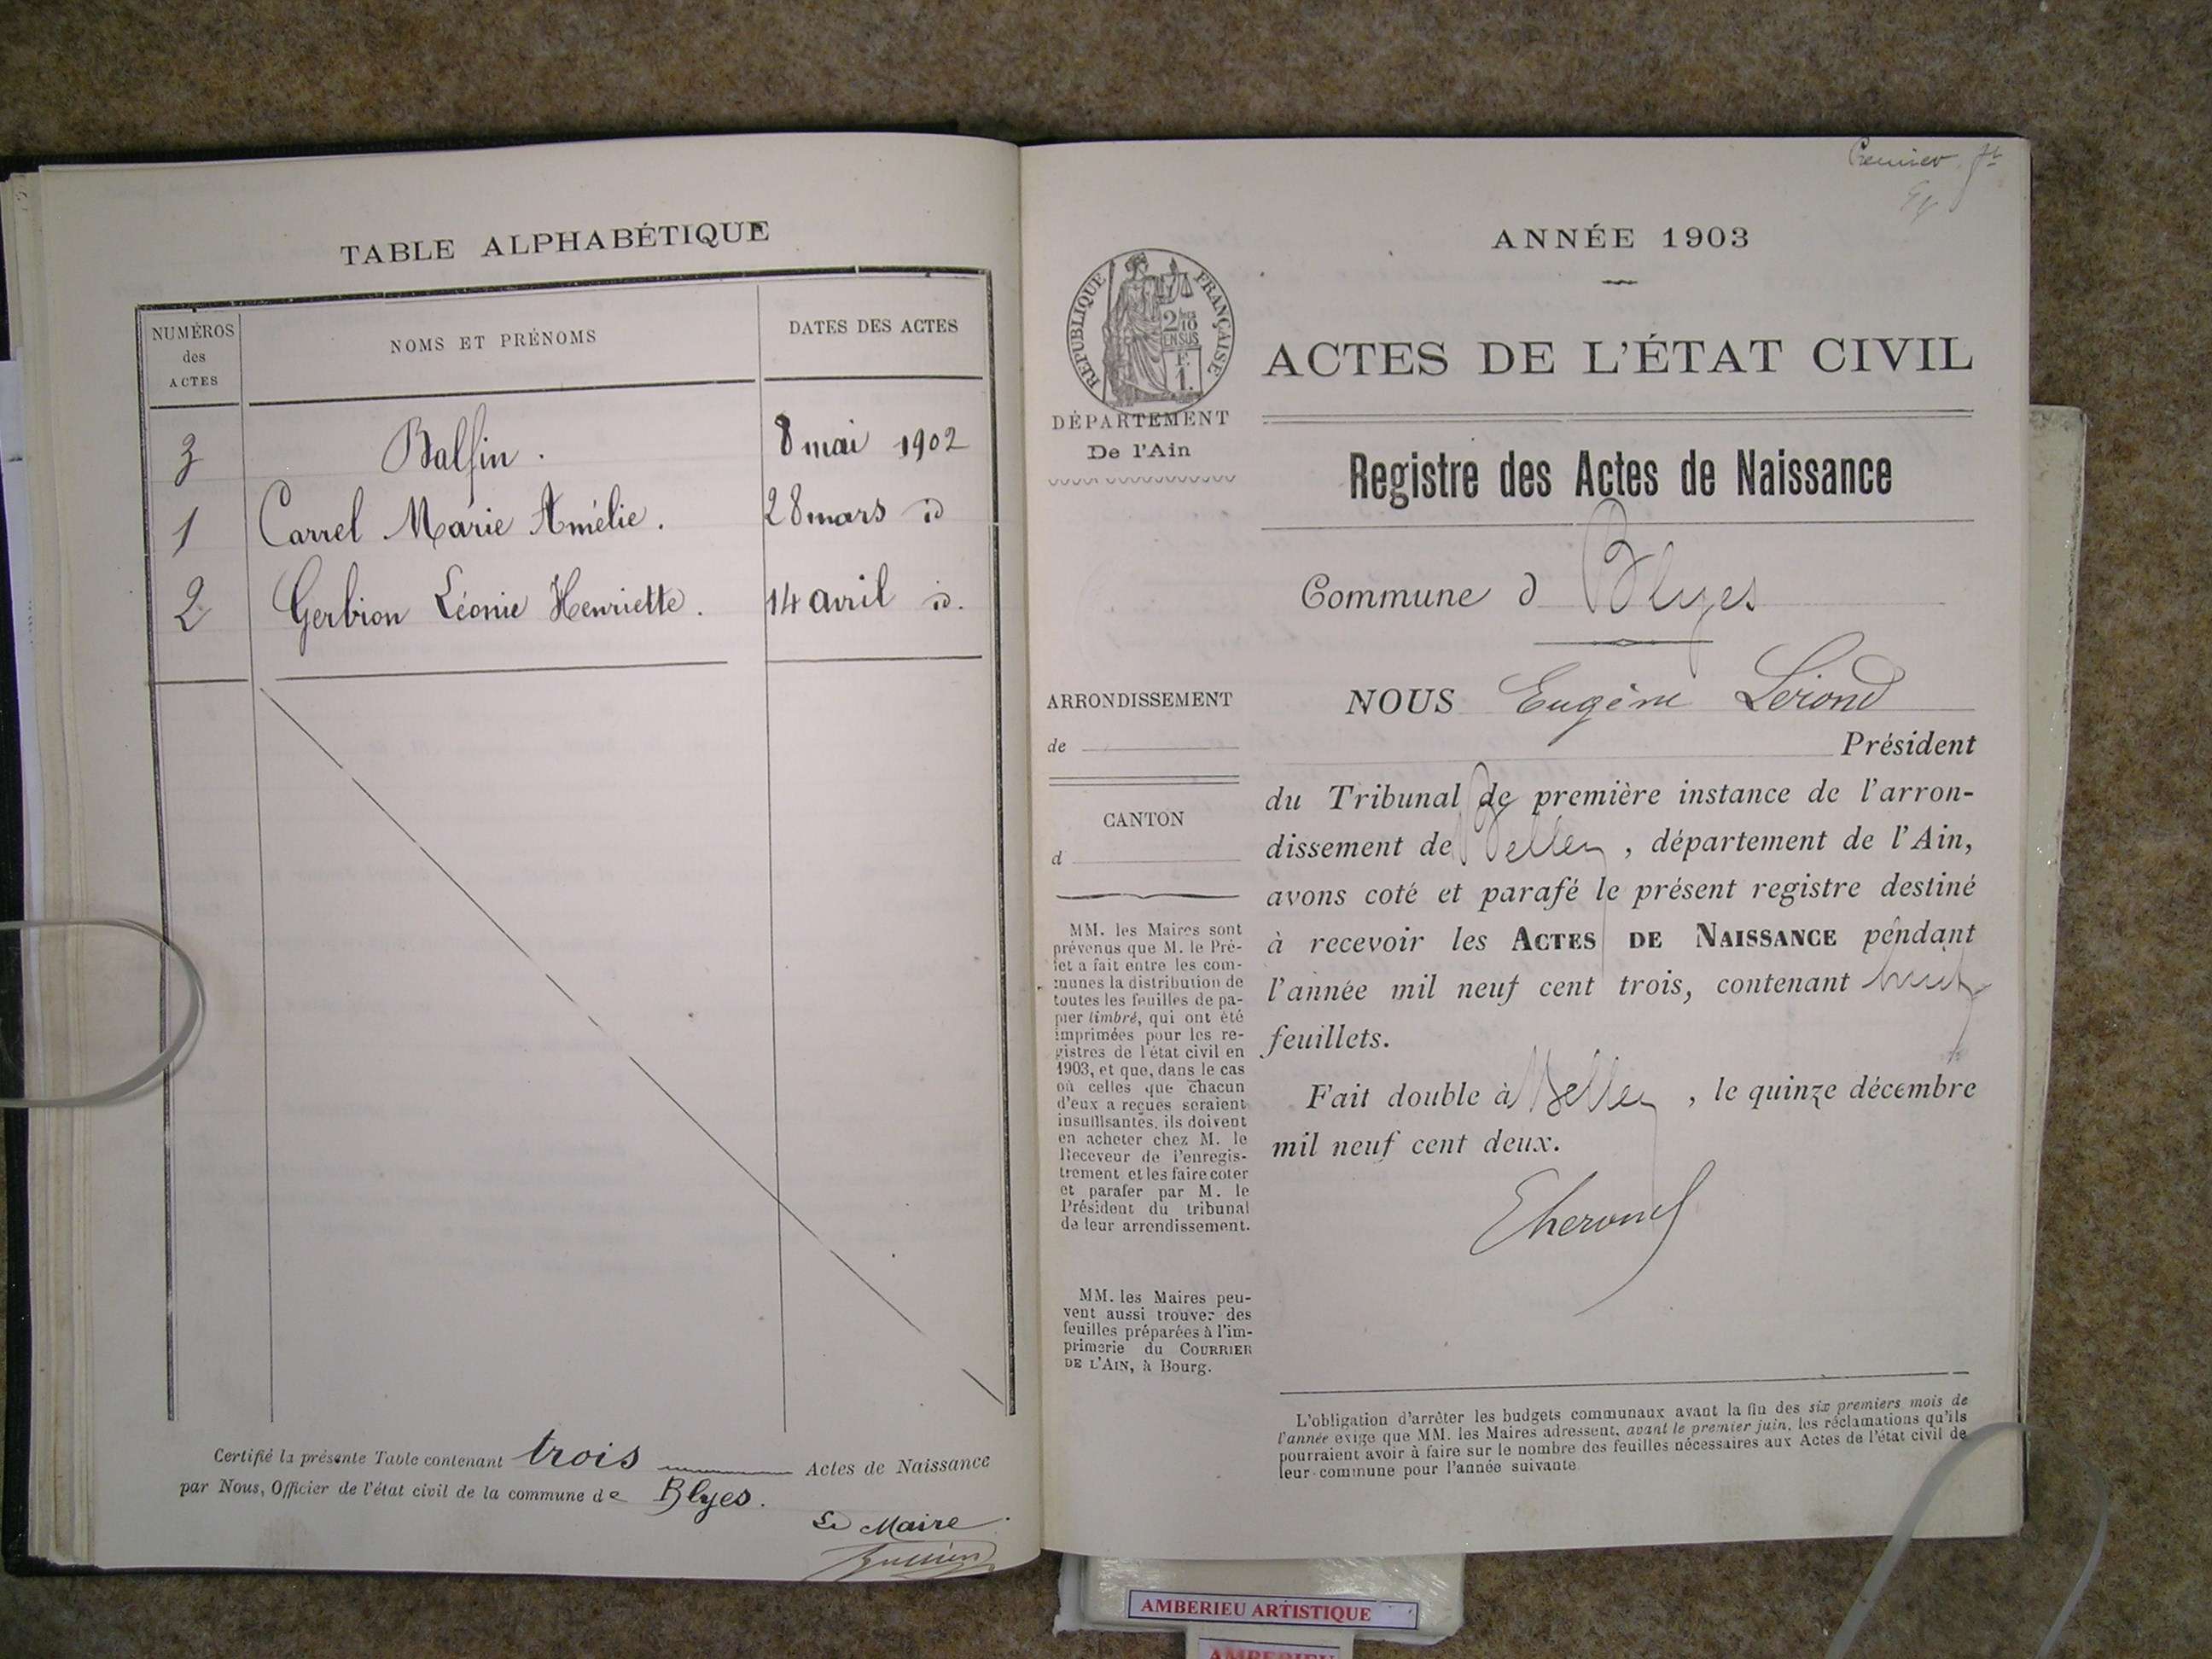 TABLE ALPHABÉTIQUE
NUMÉROS
des
ACTES
NOMS ET PRÉNOMS
DATES DES ACTES
3 Balfin. 8 mai 1902
1 Carrel Marie Amélie. 28 mars id
2 Gerbion Léonie Henriette. 14 avril id.
Certifié la présente Table contenant trois Actes de Naissance
par Nous, Officier de l'état civil de la commune de Blyes.
Le Maire
Premier ft
ANNÉE 1903
RÉPUBLIQUE FRANÇAISE
2/10
EN SUS
F.
1.
DÉPARTEMENT
De l'Ain
ARRONDISSEMENT
de
CANTON
d
MM. les Maires sont
prévenus que M. le Pré-
fet a fait entre les com-
munes la distribution de
toutes les feuilles de pa-
pier timbré, qui ont été
imprimées pour les re-
gistres de l'état civil en
1903, et que, dans le cas
où celles que chacun
d'eux a reçues seraient
insuffisantes, ils doivent
en acheter chez M. le
Receveur de l'enregis-
trement et les faire coter
et parafer par M. le
Président du tribunal
de leur arrondissement.
MM. les Maires peu-
vent aussi trouver des
feuilles préparées à l'im-
primerie du COURRIER
DE L'AIN, à Bourg.
ACTES DE L'ÉTAT CIVIL
Registre des Actes de Naissance
Commune d Blyes
NOUS Eugène
Président
du Tribunal de première instance de l'arron-
dissement de Belley, département de l'Ain,
avons coté et parafé le présent registre destiné
à recevoir les ACTES DE NAISSANCE pendant
l'année mil neuf cent trois, contenant huit
feuillets.
Fait double à Belley, le quinze décembre
mil neuf cent deux.
L'obligation d'arrêter les budgets communaux avant la fin des six premiers mois de
l'année exige que MM. les Maires adressent, avant le premier juin, les réclamations qu'ils
pourraient avoir à faire sur le nombre des feuilles nécessaires aux Actes de l'état civil de
leur commune pour l'année suivante.
AMBERIEU ARTISTIQUE
AMBERIEU